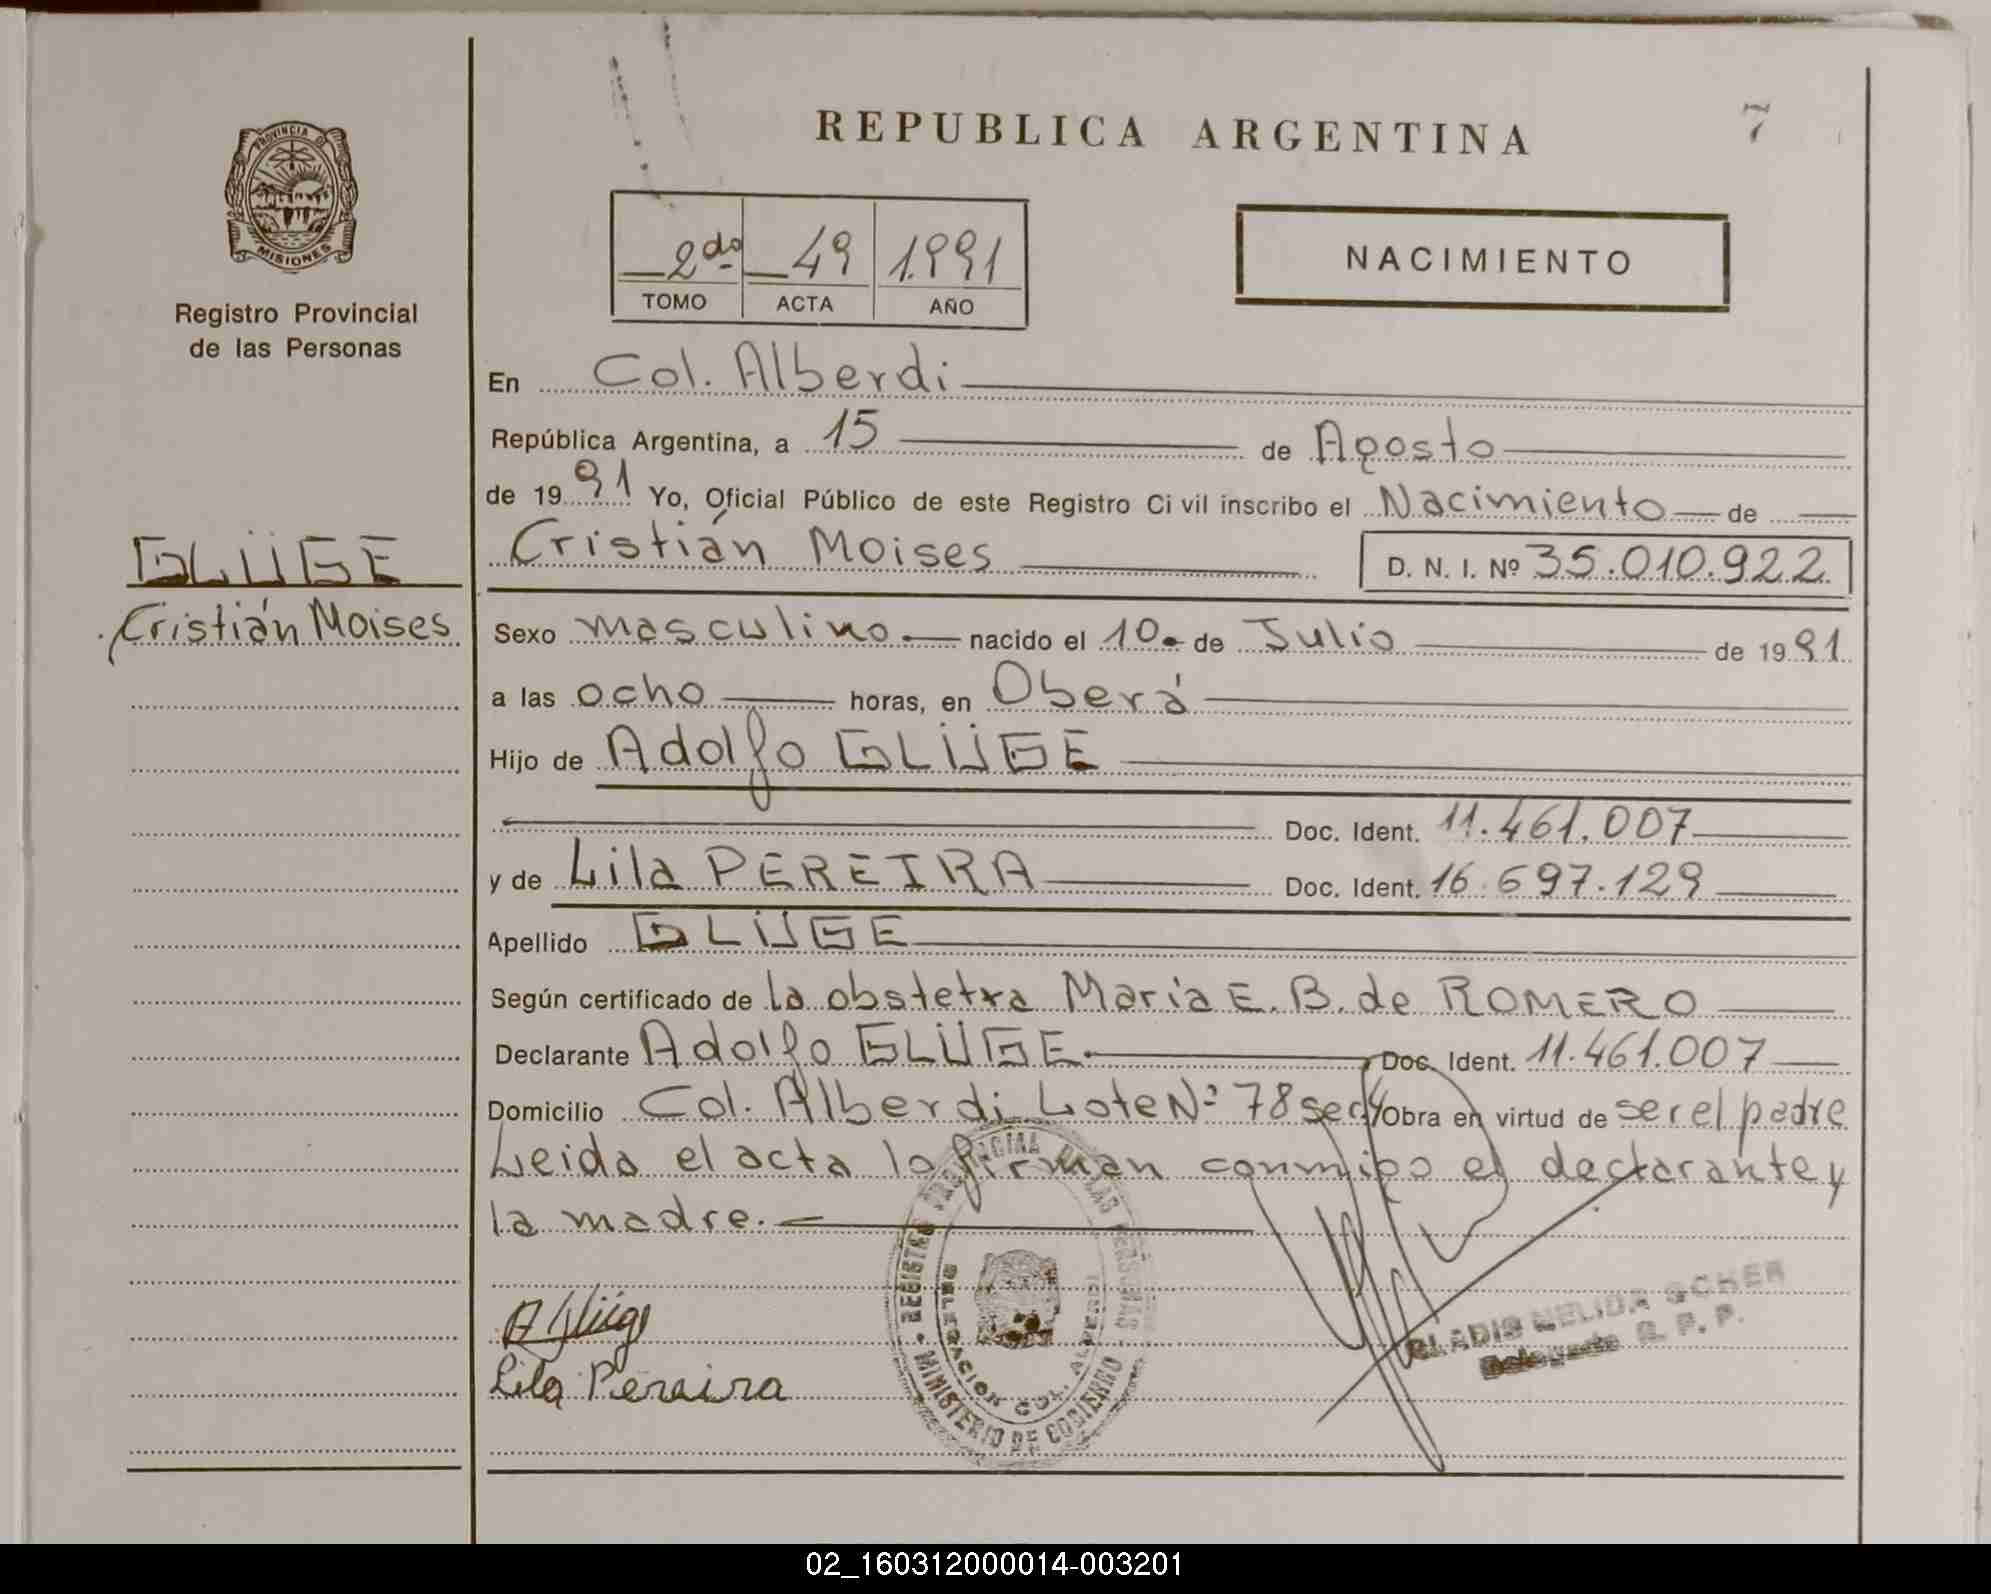 REPUBLICA ARGENTINA
7
PROVINCIA DE
MISIONES
Registro Provincial
de las Personas
2do 49 1991
TOMO ACTA AÑO
NACIMIENTO
En Col. Alberdi
República Argentina, a 15 de Agosto
de 1991 Yo, Oficial Público de este Registro Civil inscribo el Nacimiento de
Cristián Moises D. N. I. Nº 35.010.922
GLÜGE
Cristián Moises
Sexo masculino. nacido el 10 de Julio de 1991
a las ocho horas, en Oberá
Hijo de Adolfo GLÜGE
Doc. Ident. 11.461.007
y de Lila PEREIRA Doc. Ident. 16.697.129
Apellido GLÜGE
Según certificado de la obstetra María E. B. de ROMERO
Declarante Adolfo GLÜGE Doc. Ident. 11.461.007
Domicilio Col. Alberdi Lote Nº 78 sec. 4 Obra en virtud de ser el padre
Leida el acta la firman conmigo el declarante y
la madre.
A Glüge
Lila Pereira
REGISTRO PROVINCIAL DE LAS PERSONAS
DELEGACION COL. ALBERDI
MINISTERIO DE GOBIERNO
GLADIS NELIDA
Delegada R. P. P.
02_160312000014-003201